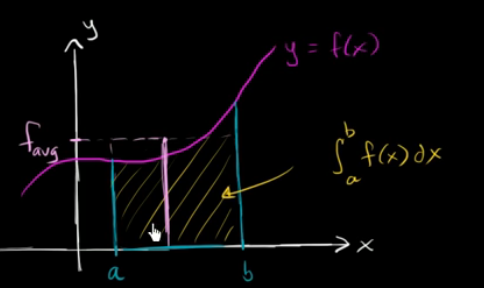 y
y = f(x)
f_avg
∫_a^b f(x)dx
x
a
b